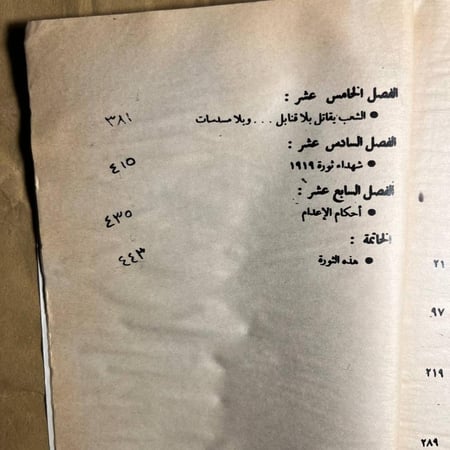 الفصل الخامس عشر :
● الشعب يقاتل بلا قنابل . . . وبلا مسدسات ٣٨١
الفصل السادس عشر :
● شهداء ثورة ١٩١٩ ٤١٥
الفصل السابع عشر :
● أحكام الإعدام ٤٣٥
الخاتمة :
● هذه الثورة ٤٤٣
٢١
٩٧
٢١٩
٢٨٩